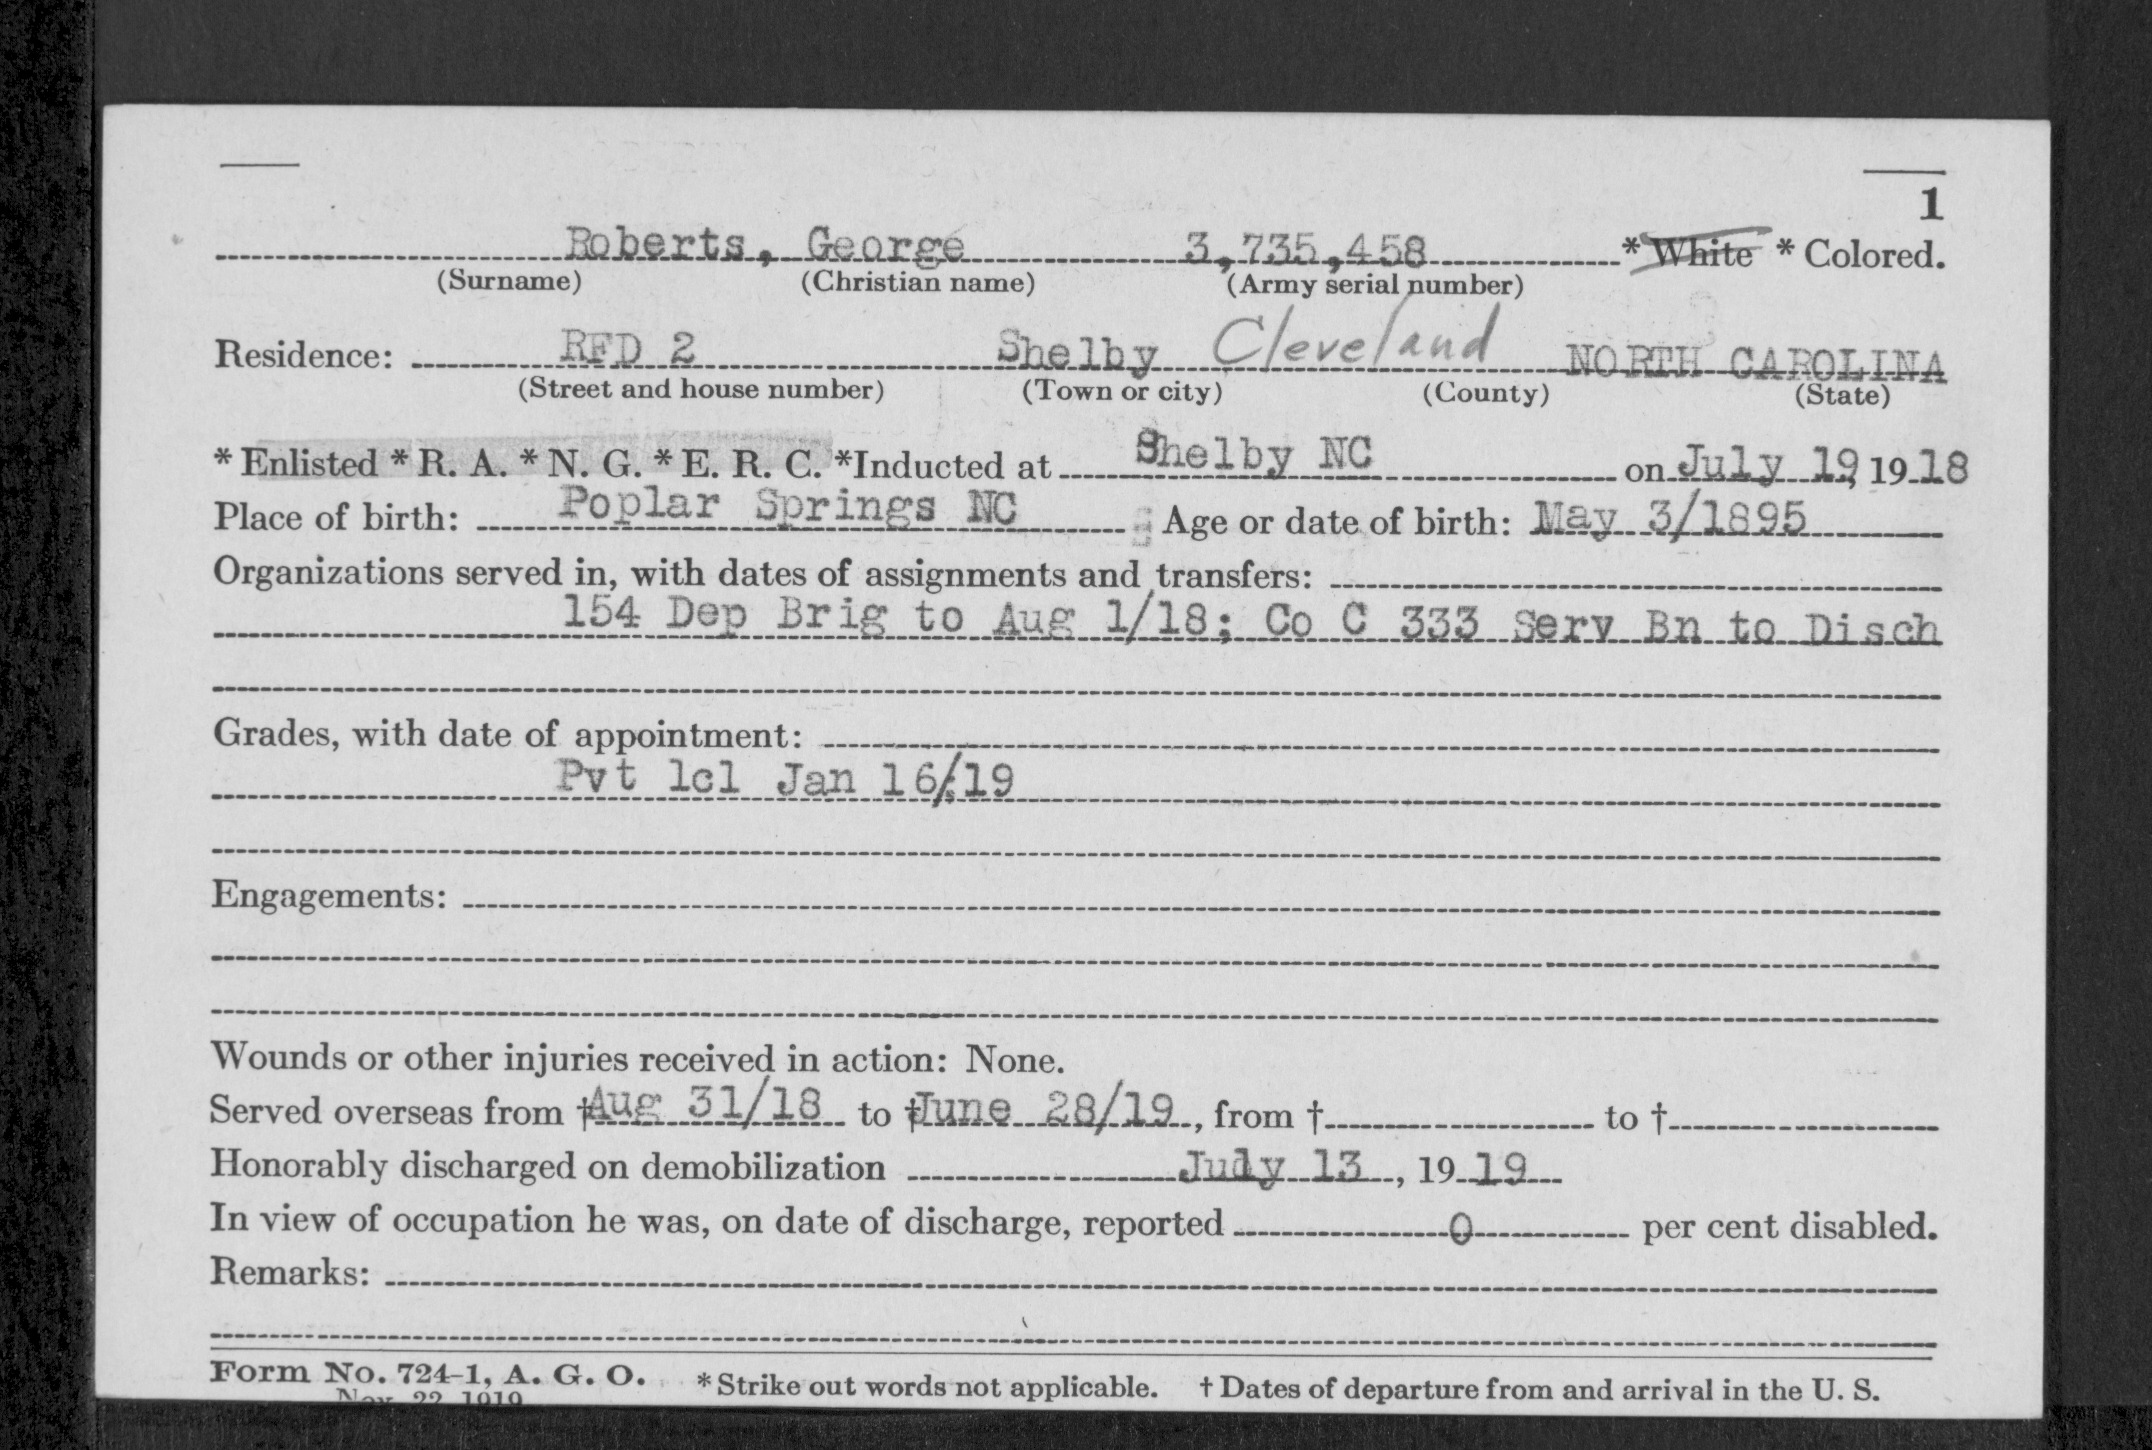 1
Roberts, George 3,735,458 * White * Colored.
(Surname) (Christian name) (Army serial number)
Residence: RFD 2 Shelby Cleveland NORTH CAROLINA
(Street and house number) (Town or city) (County) (State)
* Enlisted * R. A. * N. G. * E. R. C. *Inducted at Shelby NC on July 19, 1918
Place of birth: Poplar Springs NC Age or date of birth: May 3/1895
Organizations served in, with dates of assignments and transfers:
154 Dep Brig to Aug 1/18; Co C 333 Serv Bn to Disch
Grades, with date of appointment:
Pvt 1cl Jan 16/19
Engagements:
Wounds or other injuries received in action: None.
Served overseas from † Aug 31/18 to † June 28/19, from † to †
Honorably discharged on demobilization July 13, 1919
In view of occupation he was, on date of discharge, reported 0 per cent disabled.
Remarks:
Form No. 724-1, A. G. O. * Strike out words not applicable. † Dates of departure from and arrival in the U. S.
Nov. 22, 1919